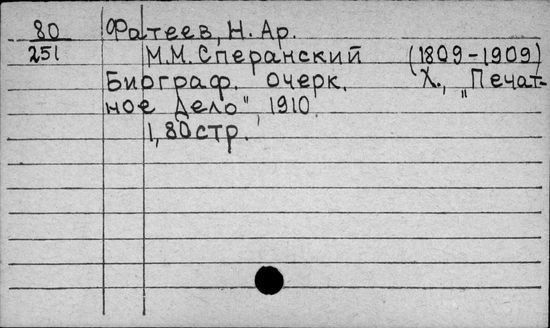 80 Фатеев, Н. Ар.
251 М.М. Сперанский (1809-1909)
Биограф. очерк. Х., „Печат-
ное Дело" 1910.
1, 80 стр.